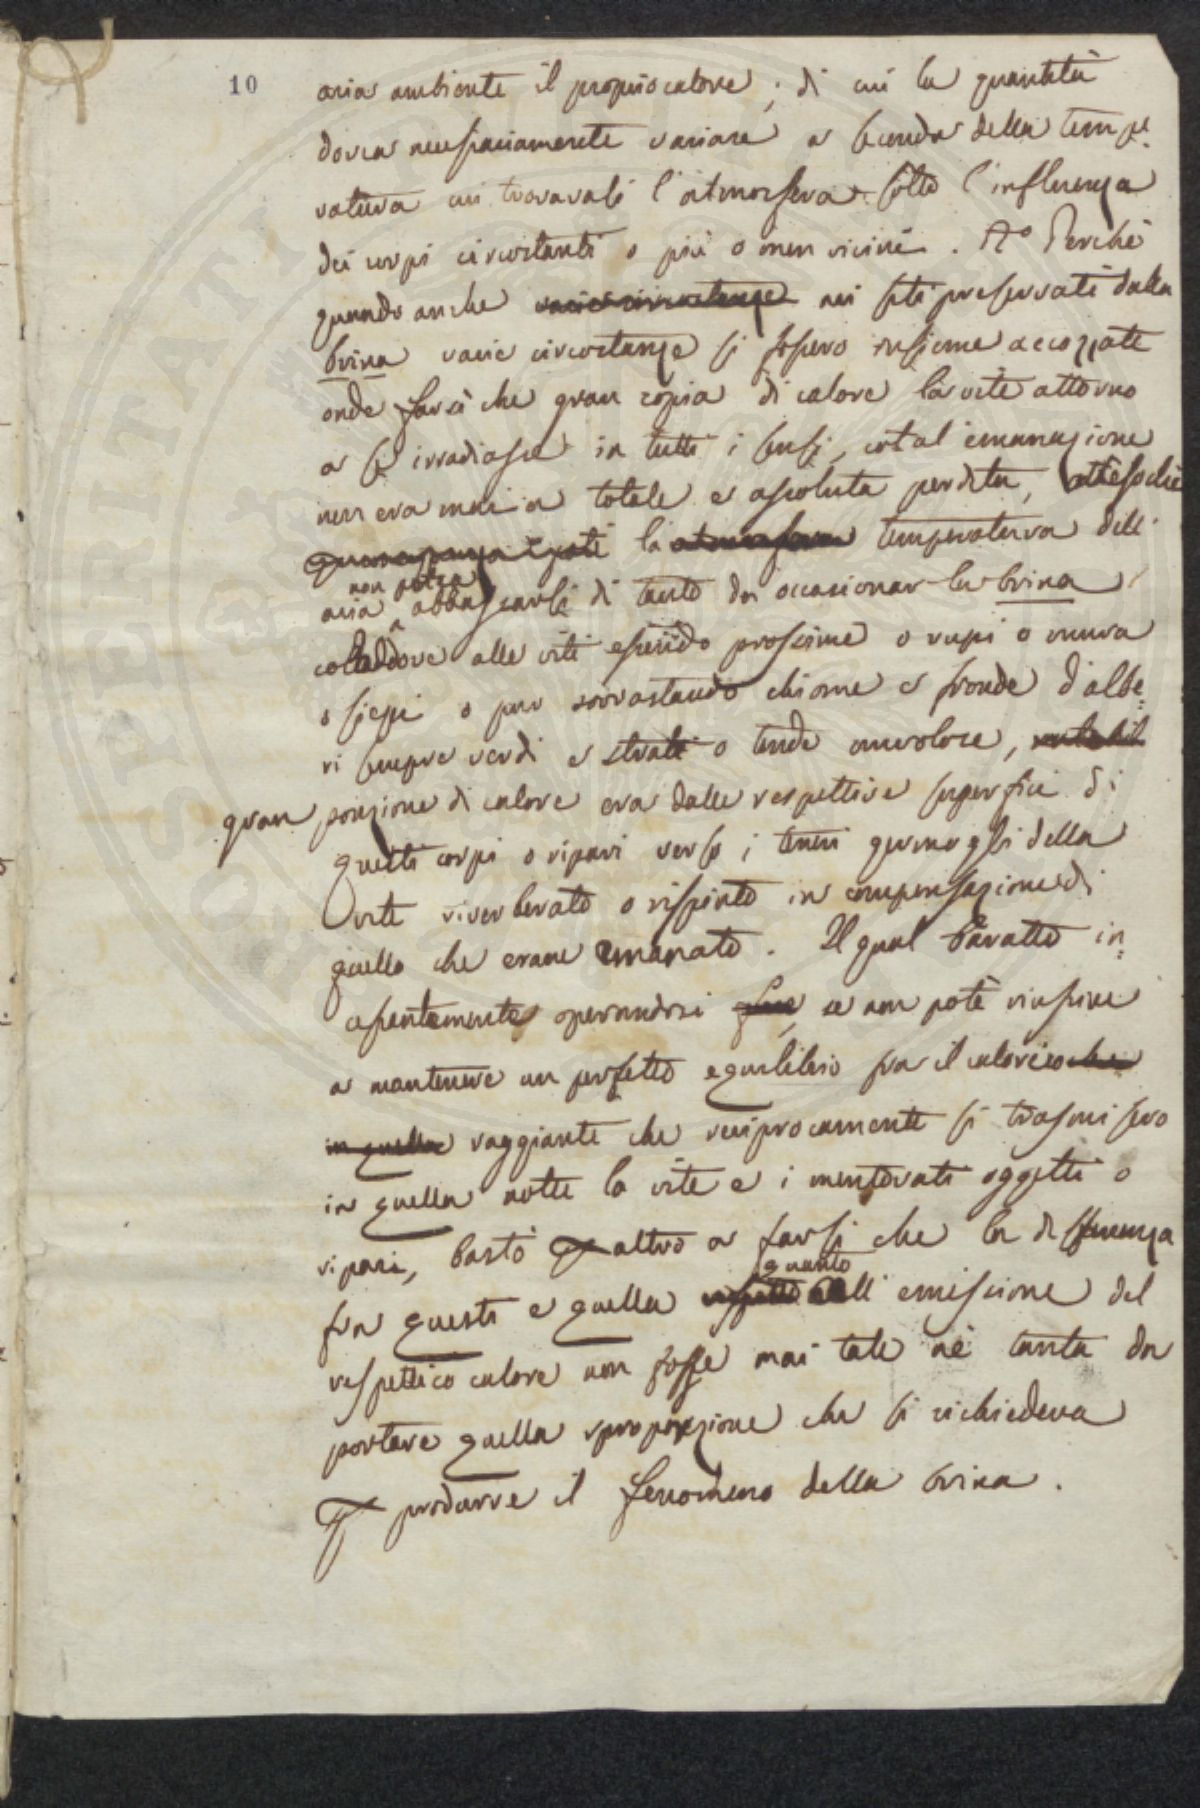 10
aria ambiente il proprio calore, di cui la quantità
dovea necessariamente variare a seconda della tempe-
ratura cui trovavasi l'atmosfera sotto l'influenza
dei corpi circostanti o più o men vicini. 4° Perchè
quando anche varie circostanze nei siti preservati dalla
brina varie circostanze si fossero insieme accozzate
onde far sì che gran copia di calore la vite attorno
a se irradiasse in tutti i sensi, cotal emanazione
non era mai a totale e assoluta perdita, attesochè
la atmosfera temperatura dell'
non potea
aria abbassarsi di tanto da occasionar la brina
coladdove alle viti essendo prossime o rupi o mura
o siepi o pur sovrastando chiome e fronde d'albe=
ri sempre verdi e strati o tende nuvolose,
gran porzione di calore era dalle respettive superficie di
questi corpi o ripari verso i teneri germogli della
vite riverberato o rispinto in compensazione di
quello che erane emanato. Il qual baratto in=
cessantemente operandosi se non potè riuscire
a mantenere un perfetto equilibrio fra il calorico che
in quella raggiante che reciprocamente si trasmisero
in quella notte la vite e i mentovati oggetti o
ripari, bastò per altro a far sì che la differenza
quanto
fra questi e quella rispetto all'emissione del
respettico calore non fosse mai tale nè tanta da
portare quella sproporzione che si richiedeva
per produrre il fenomeno della brina.